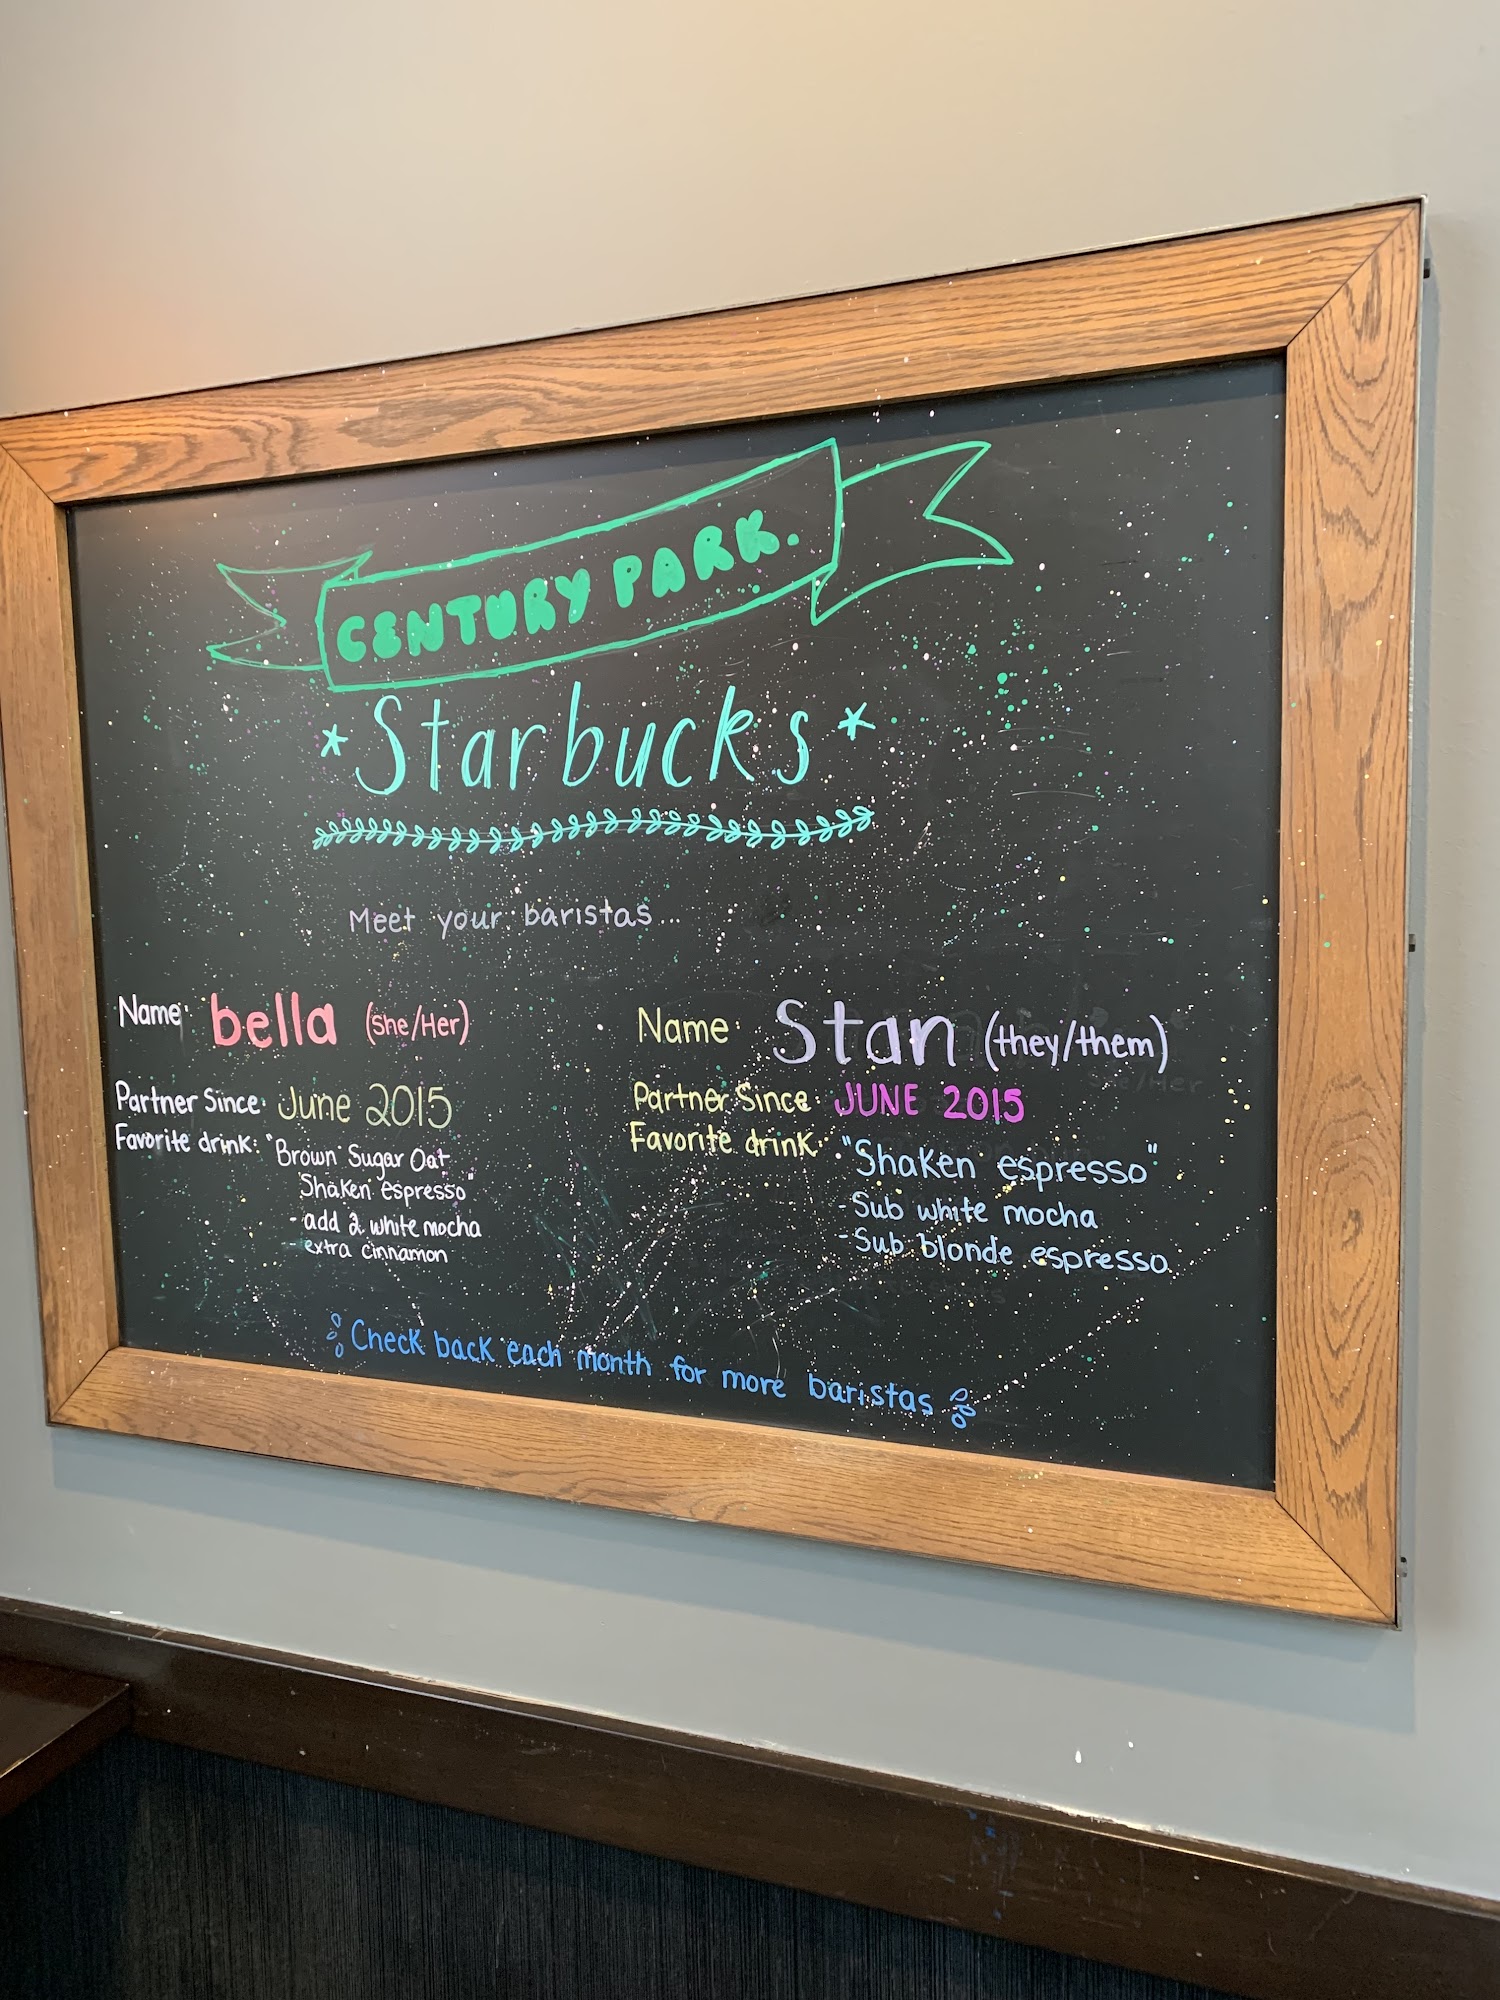 CENTURY PARK.
*Starbucks*
Meet your baristas...
Name: bella (she/Her)
Partner Since: June 2015
Favorite drink: "Brown Sugar Oat
Shaken espresso"
- add 2 white mocha
- extra cinnamon
Name: Stan (they/them)
Partner Since: JUNE 2015
Favorite drink: "Shaken espresso"
- Sub white mocha
- Sub blonde espresso
Check back each month for more baristas